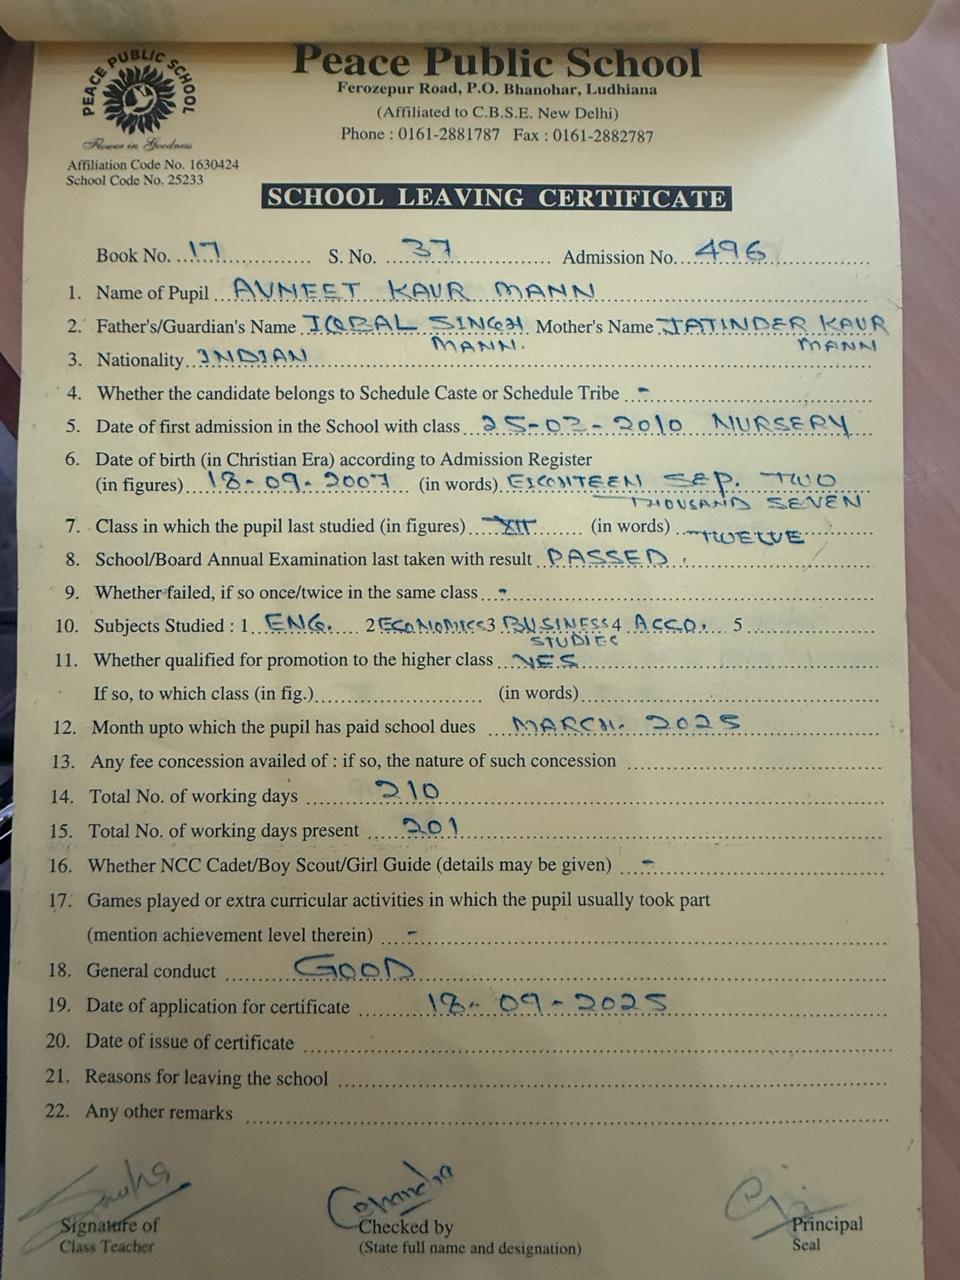 Peace Public School
PEACE PUBLIC SCHOOL
Ferozepur Road, P.O. Bhanohar, Ludhiana
(Affiliated to C.B.S.E. New Delhi)
Phone : 0161-2881787 Fax : 0161-2882787
Affiliation Code No. 1630424
School Code No. 25233
SCHOOL LEAVING CERTIFICATE
Book No. 17 S. No. 37 Admission No. 496
1. Name of Pupil AVNEET KAUR MANN
2. Father's/Guardian's Name IQBAL SINGH Mother's Name JATINDER KAUR
MANN. MANN
3. Nationality INDIAN
4. Whether the candidate belongs to Schedule Caste or Schedule Tribe -
5. Date of first admission in the School with class 25-03-2010 NURSERY
6. Date of birth (in Christian Era) according to Admission Register
(in figures) 18-09-2007 (in words) EIGHTEEN SEP. TWO
THOUSAND SEVEN
7. Class in which the pupil last studied (in figures) XII (in words) TWELVE
8. School/Board Annual Examination last taken with result PASSED.
9. Whether failed, if so once/twice in the same class -
10. Subjects Studied : 1 ENG. 2 ECONOMICS 3 BUSINESS 4 ACCO. 5
STUDIES
11. Whether qualified for promotion to the higher class YES
If so, to which class (in fig.) (in words)
12. Month upto which the pupil has paid school dues MARCH. 2025
13. Any fee concession availed of : if so, the nature of such concession
14. Total No. of working days 210
15. Total No. of working days present 201
16. Whether NCC Cadet/Boy Scout/Girl Guide (details may be given) -
17. Games played or extra curricular activities in which the pupil usually took part
(mention achievement level therein) -
18. General conduct GOOD
19. Date of application for certificate 18-09-2025
20. Date of issue of certificate
21. Reasons for leaving the school
22. Any other remarks
Signature of Checked by Principal
Class Teacher (State full name and designation) Seal